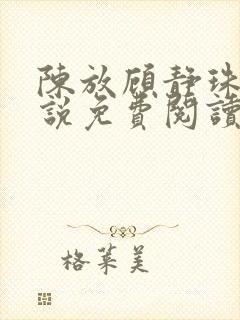 陳放顧靜珠
說免費閱讀
格萊美